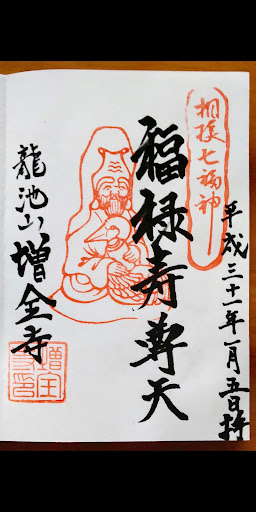 相模七福神
平成三十一年一月五日拝
福禄寿尊天
龍池山増全寺
増全寺印